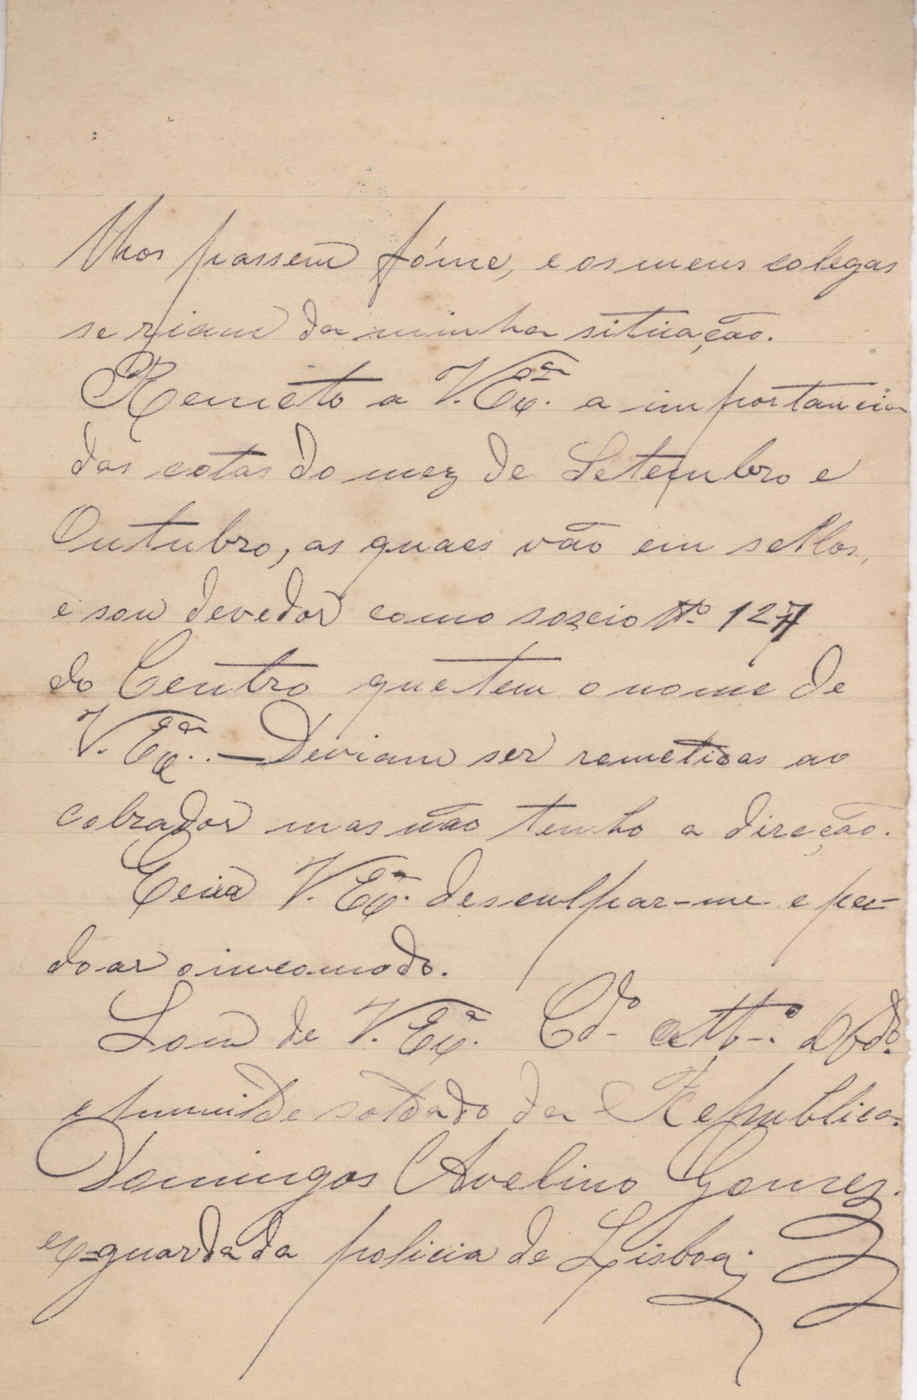 lhos passem fóme, e os meus colegas
se riam da minha situação.
Remeto a V. Exª. a importancia
das cotas do mez de Setembro e
Outubro, as quaes vão em sellos,
e sou devedor como soscio Nº. 127
do Centro que tem o nome de
V. Exª. — Deviam ser remetidas ao
cobrador mas não tenho a direção.
Queira V. Exª. desculpar-me e per-
doar o incomodo.
Sou de V. Exª. Cdº. attº. Obdº.
e humilde soldado da Republica.
Domingos Avelino Gomes.
ex-guarda da policia de Lisboa.